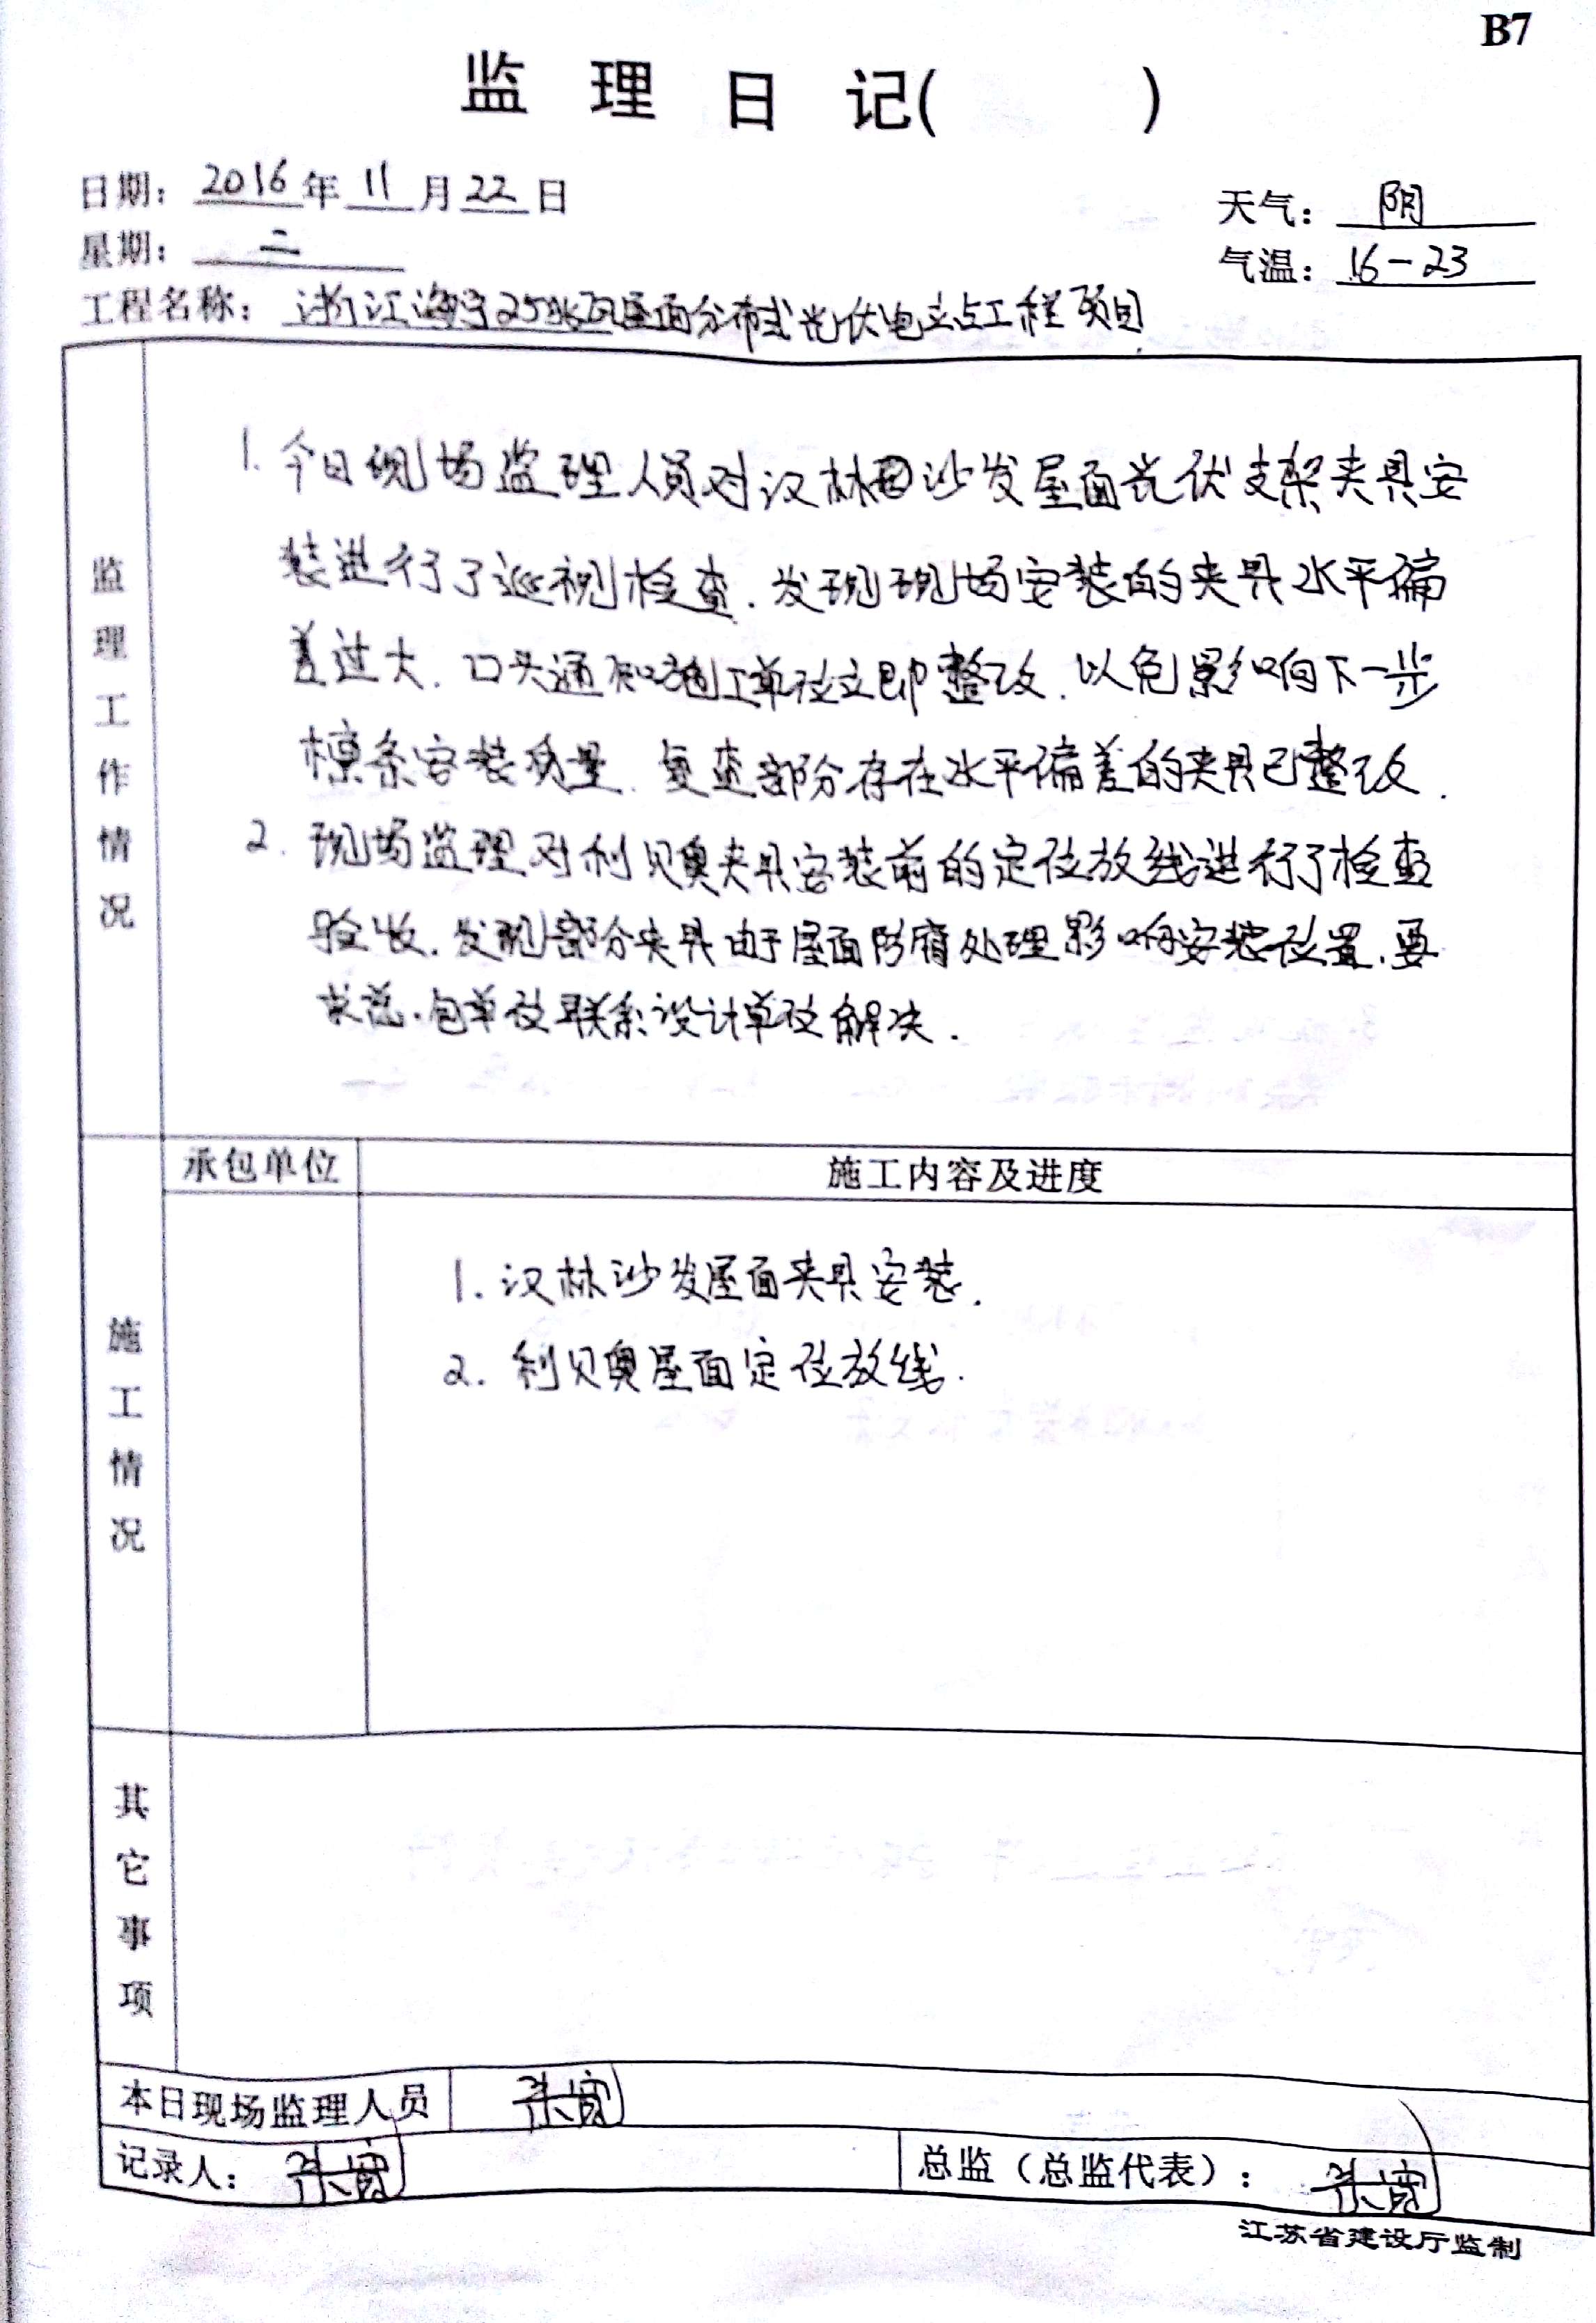 B7
监 理 日 记( )
日期: 2016 年 11 月 22 日
天气: 阴
星期: 二
气温: 16-23
工程名称: 浙江海宁25兆瓦屋面分布式光伏电站工程项目
监理工作情况
1. 今日现场监理人员对汉林沙发屋面光伏支架夹具安
装进行了巡视检查. 发现现场安装的夹具水平偏
差过大. 口头通知施工单位立即整改. 以免影响下一步
檩条安装质量. 复查部分存在水平偏差的夹具已整改.
2. 现场监理对利贝奥夹具安装前的定位放线进行了检查
验收. 发现部分夹具由于屋面防腐处理影响安装位置. 要
求总包单位联系设计单位解决.
承包单位
施工内容及进度
施工情况
1. 汉林沙发屋面夹具安装.
2. 利贝奥屋面定位放线.
其它事项
本日现场监理人员
记录人:
总监（总监代表）:
江苏省建设厅监制